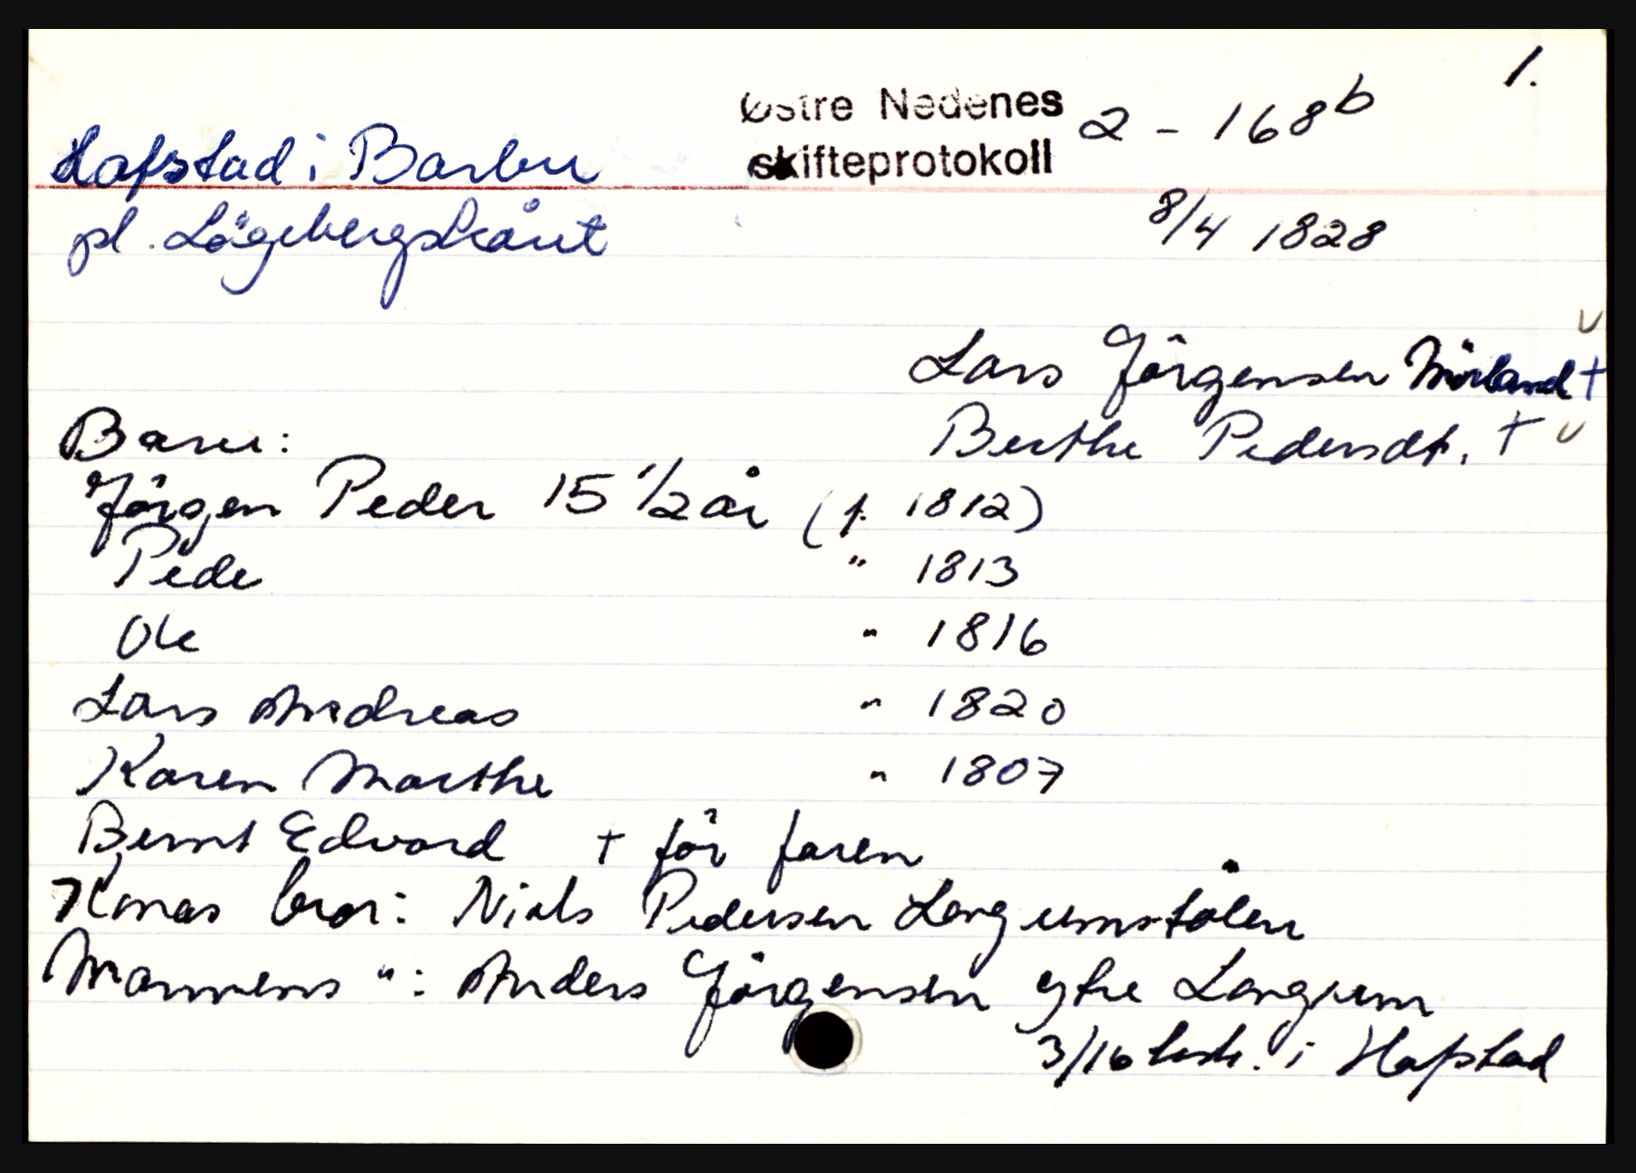 1.
Østre Nedenes 2 - 168b
skifteprotokoll
Hafstad i Barbu
8/4 1828
pl.
Lars Jörgensen Mörland +
Berthe Pedersdt. +
Barn:
Jörgen Peder 15 1/2 år (f. 1812)
Pede " 1813
Ole " 1816
Lars Andreas " 1820
Karen Marthe " 1807
Bernt Edvard + för faren
Konas bror: Niels Pedersen Langumstölen
Mannens ": Anders Jörgensen ytre Langum
3/16 i Hafstad